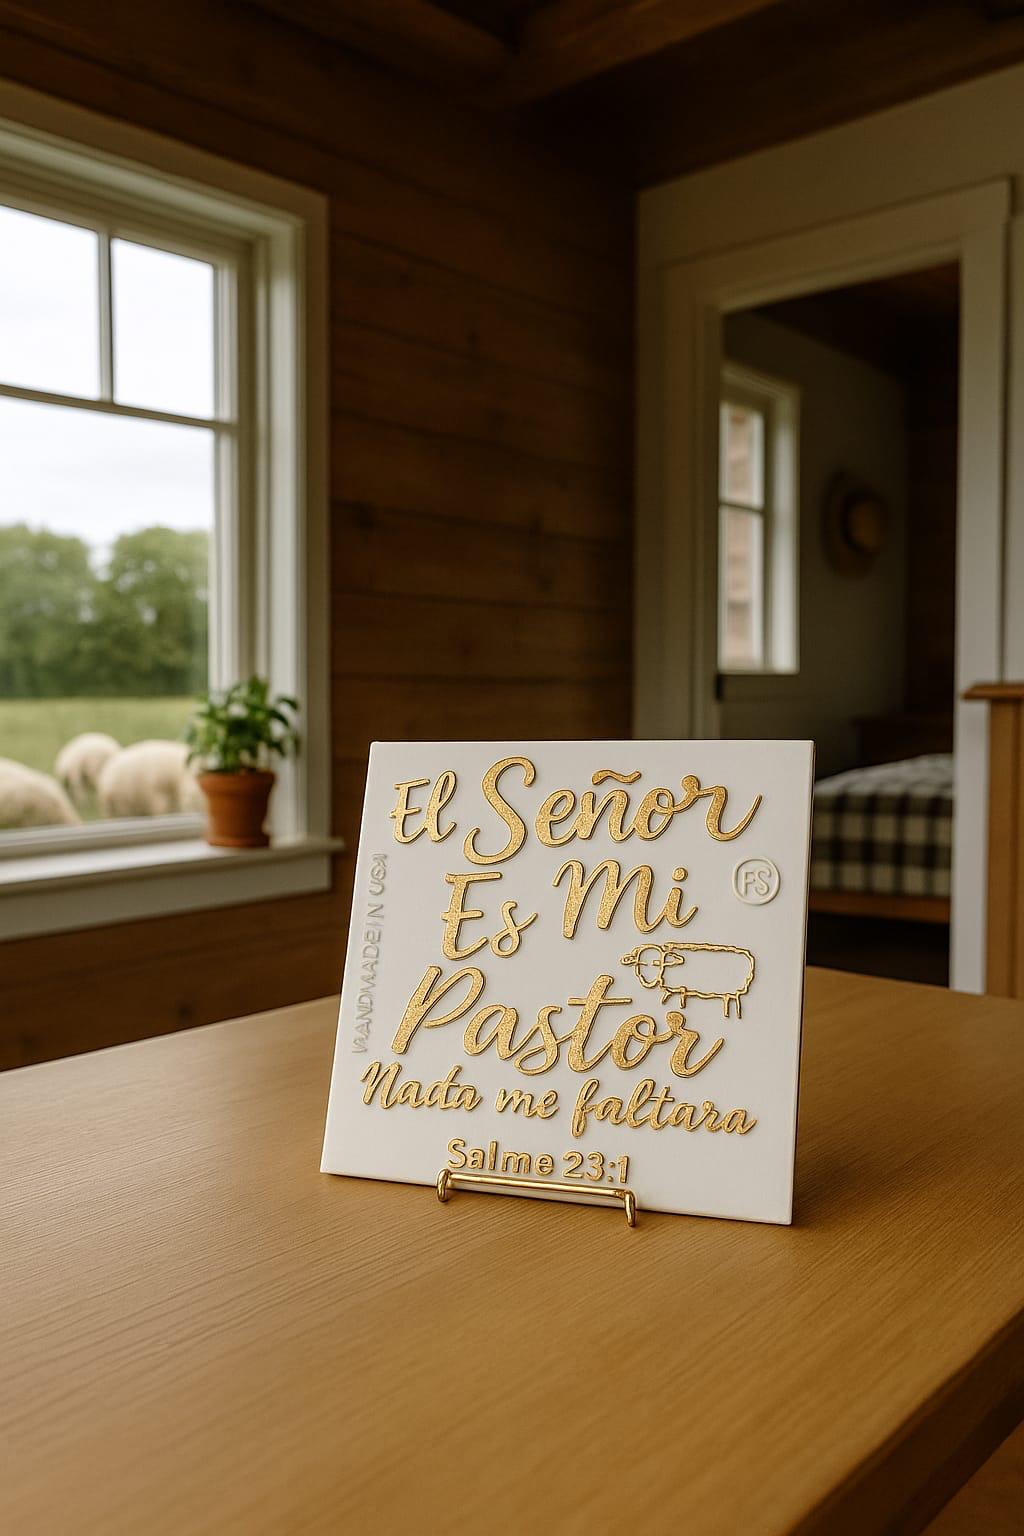 El Señor
Es Mi
Pastor
Nada me faltara
Salme 23:1
HANDMADE IN USA
FS